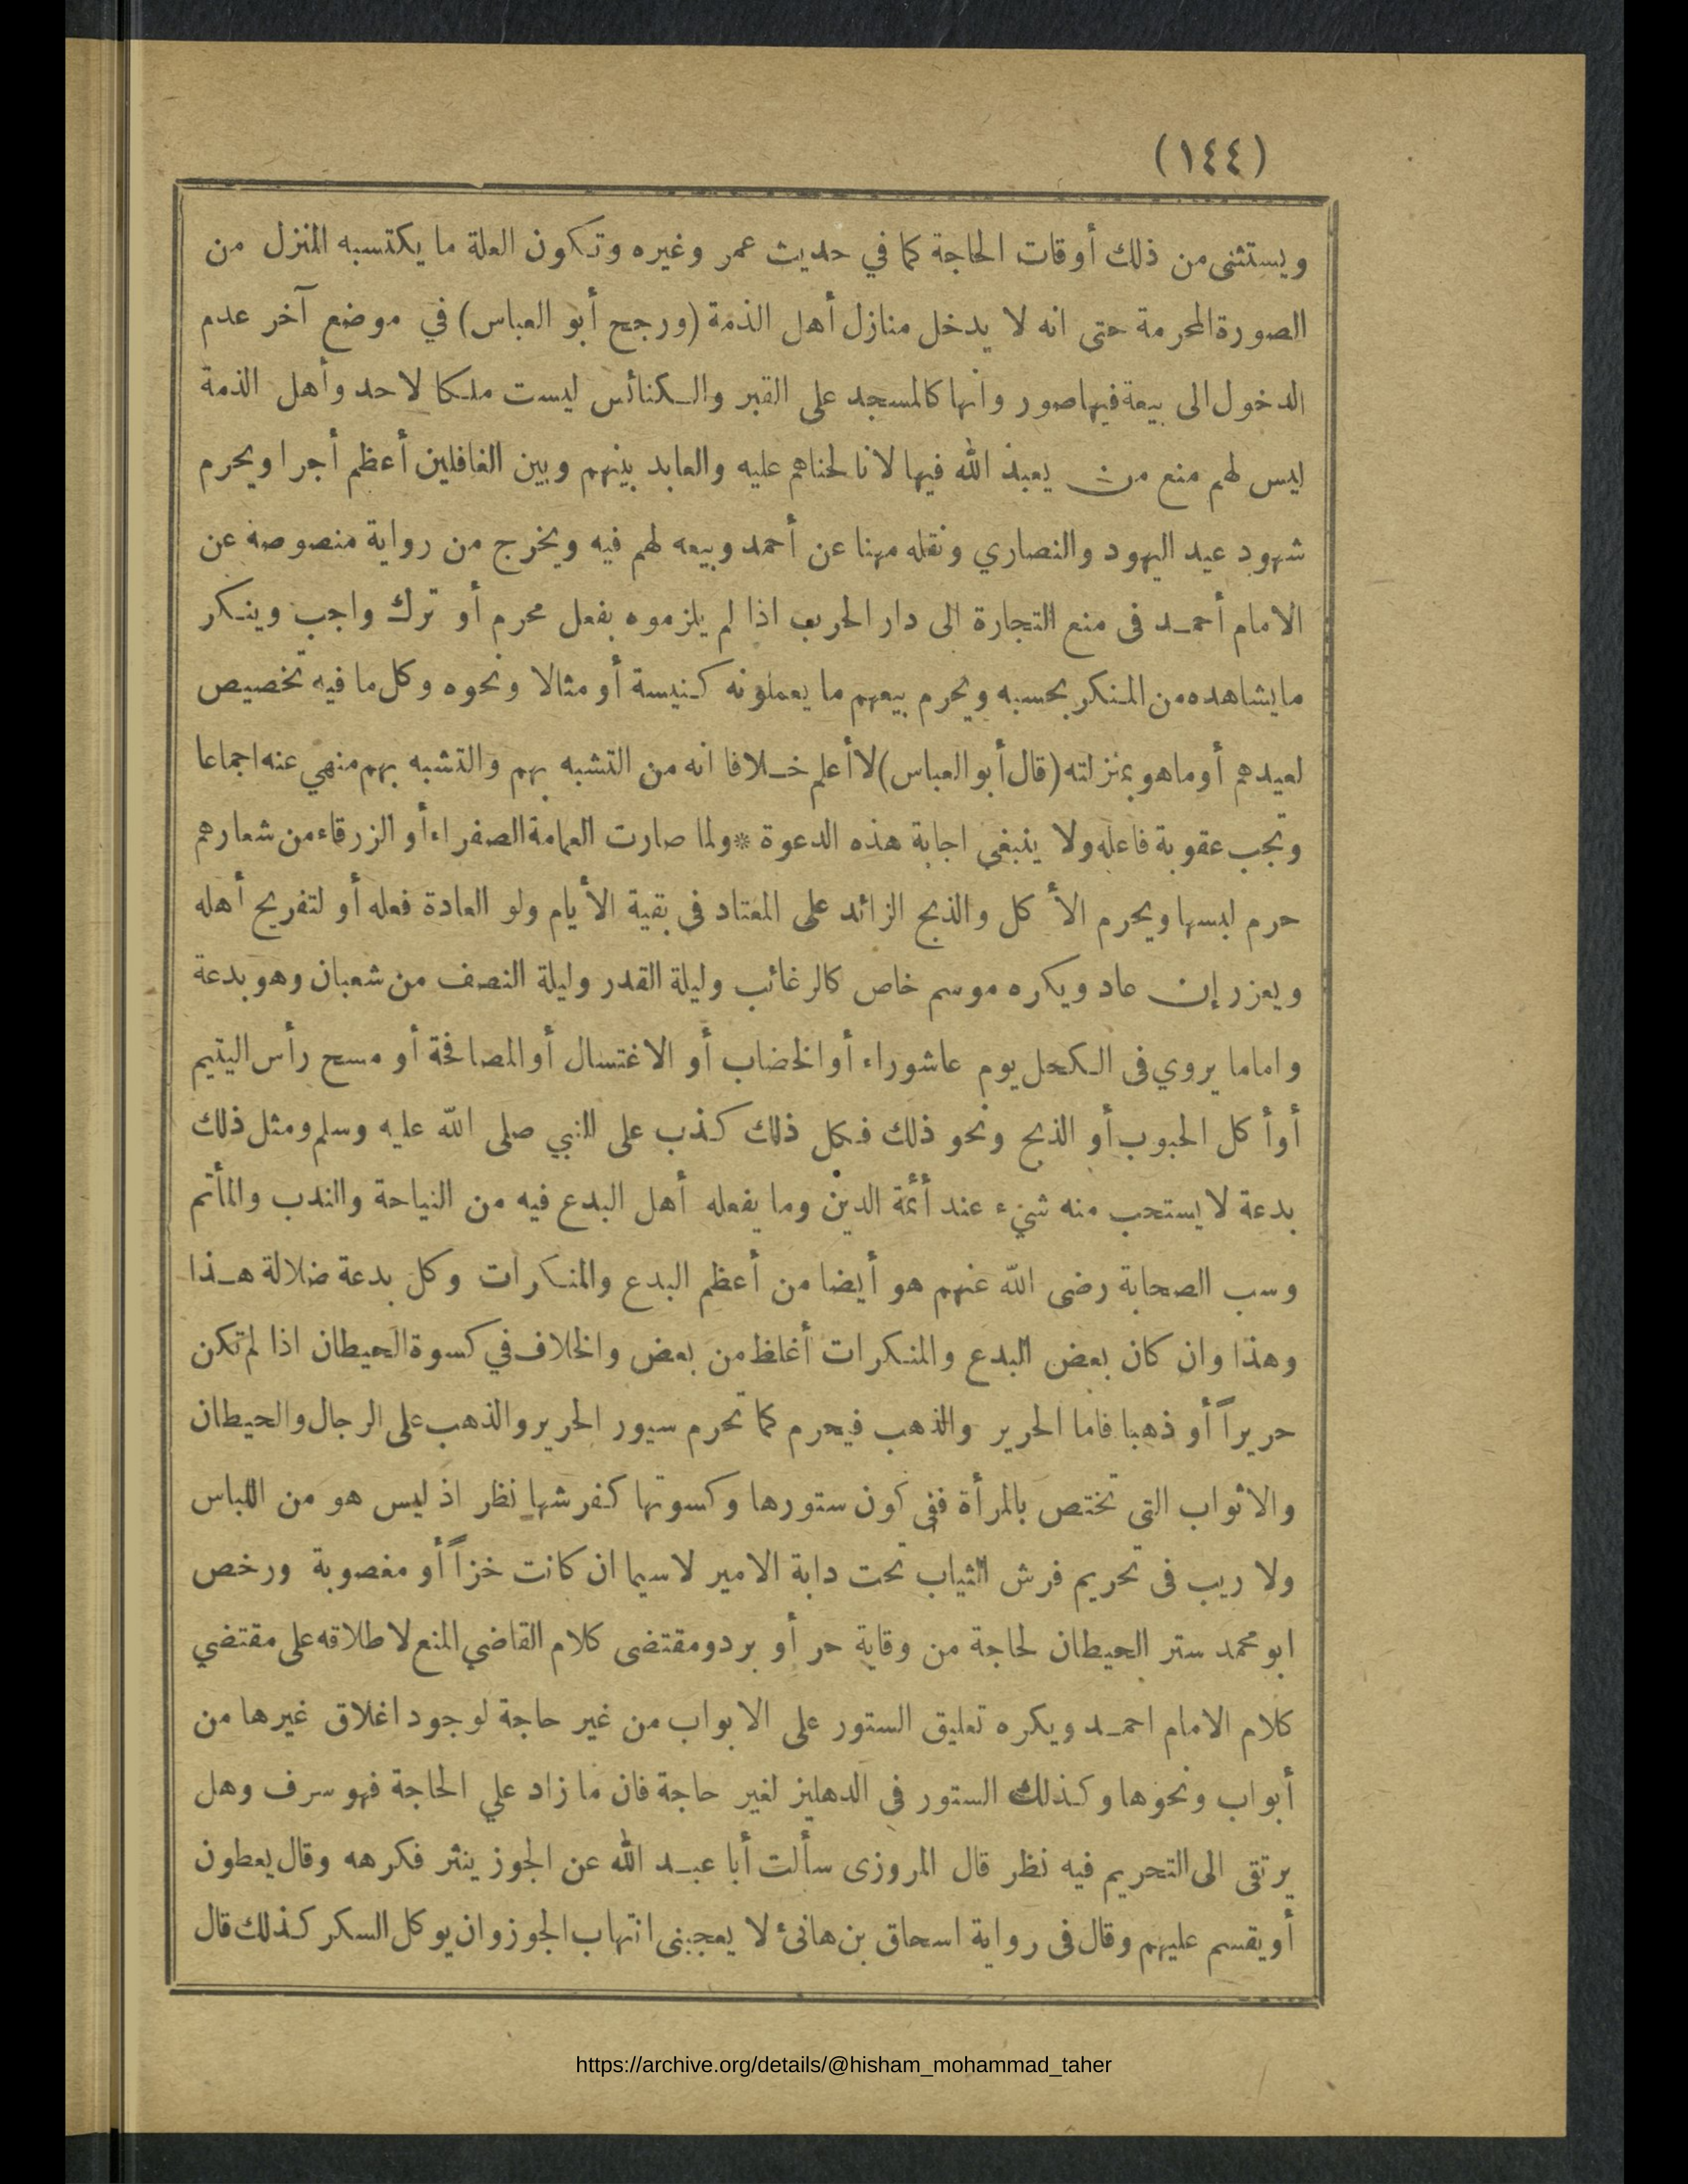 (١٤٤)
ويستثنى من ذلك أوقات الحاجة كما في حديث عمر وغيره وتكون العلة ما يكتسبه المنزل من
الصورة المحرمة حتى انه لا يدخل منازل أهل الذمة (ورجح أبو العباس) في موضع آخر عدم
الدخول الى بيعة فيها صور وانها كالمسجد على القبر والكنائس ليست ملكا لاحد وأهل الذمة
ليس لهم منع من يعبد الله فيها لانا لحناهم عليه والعابد بينهم وبين الغافلين أعظم أجرا ويحرم
شهود عيد اليهود والنصاري ونقله مهنا عن أحمد وبيعه لهم فيه ويخرج من رواية منصوصة عن
الامام أحمد فى منع التجارة الى دار الحرب اذا لم يلزموه بفعل محرم أو ترك واجب وينكر
ما يشاهده من المنكر بحسبه ويحرم بيعهم ما يعملونه كنيسة أو مثالا ونحوه وكل ما فيه تخصيص
لعيدهم أو ماهو بمنزلته (قال أبو العباس) لا أعلم خلافا انه من التشبه بهم والتشبه بهم منهي عنه اجماعا
وتجب عقوبة فاعله ولا ينبغي اجابة هذه الدعوة * ولما صارت العمامة الصفراء أو الزرقاء من شعارهم
حرم لبسها ويحرم الأكل والذبح الزائد على المعتاد فى بقية الأيام ولو العادة فعله أو لتفريح أهله
ويعزر إن عاد ويكره موسم خاص كالرغائب وليلة القدر وليلة النصف من شعبان وهو بدعة
واما ما يروي فى الكحل يوم عاشوراء أو الخضاب أو الاغتسال أو المصافحة أو مسح رأس اليتيم
أو أكل الحبوب أو الذبح ونحو ذلك فكل ذلك كذب على النبي صلى الله عليه وسلم ومثل ذلك
بدعة لا يستحب منه شيء عند أئمة الدين وما يفعله أهل البدع فيه من النياحة والندب والمأتم
وسب الصحابة رضى الله عنهم هو أيضا من أعظم البدع والمنكرات وكل بدعة ضلالة هذا
وهذا وان كان بعض البدع والمنكرات أغلظ من بعض والخلاف في كسوة الحيطان اذا لم تكن
حريراً أو ذهبا فاما الحرير والذهب فيحرم كما تحرم سيور الحرير والذهب على الرجال والحيطان
والاثواب التى تختص بالمرأة ففى كون ستورها وكسوتها كفرشها نظر اذ ليس هو من اللباس
ولا ريب فى تحريم فرش الثياب تحت دابة الامير لا سيما ان كانت خزاً أو مغصوبة ورخص
ابو محمد ستر الحيطان لحاجة من وقاية حر أو برد ومقتضى كلام القاضي المنع لاطلاقه على مقتضي
كلام الامام احمد ويكره تعليق الستور على الابواب من غير حاجة لوجود اغلاق غيرها من
أبواب ونحوها وكذلك الستور في الدهليز لغير حاجة فان ما زاد علي الحاجة فهو سرف وهل
يرتقى الى التحريم فيه نظر قال المروزى سألت أبا عبد الله عن الجوز ينثر فكرهه وقال يعطون
أو يقسم عليهم وقال فى رواية اسحاق بن هانئ لا يعجبنى انتهاب الجوز وان يوكل السكر كذلك قال
https://archive.org/details/@hisham_mohammad_taher